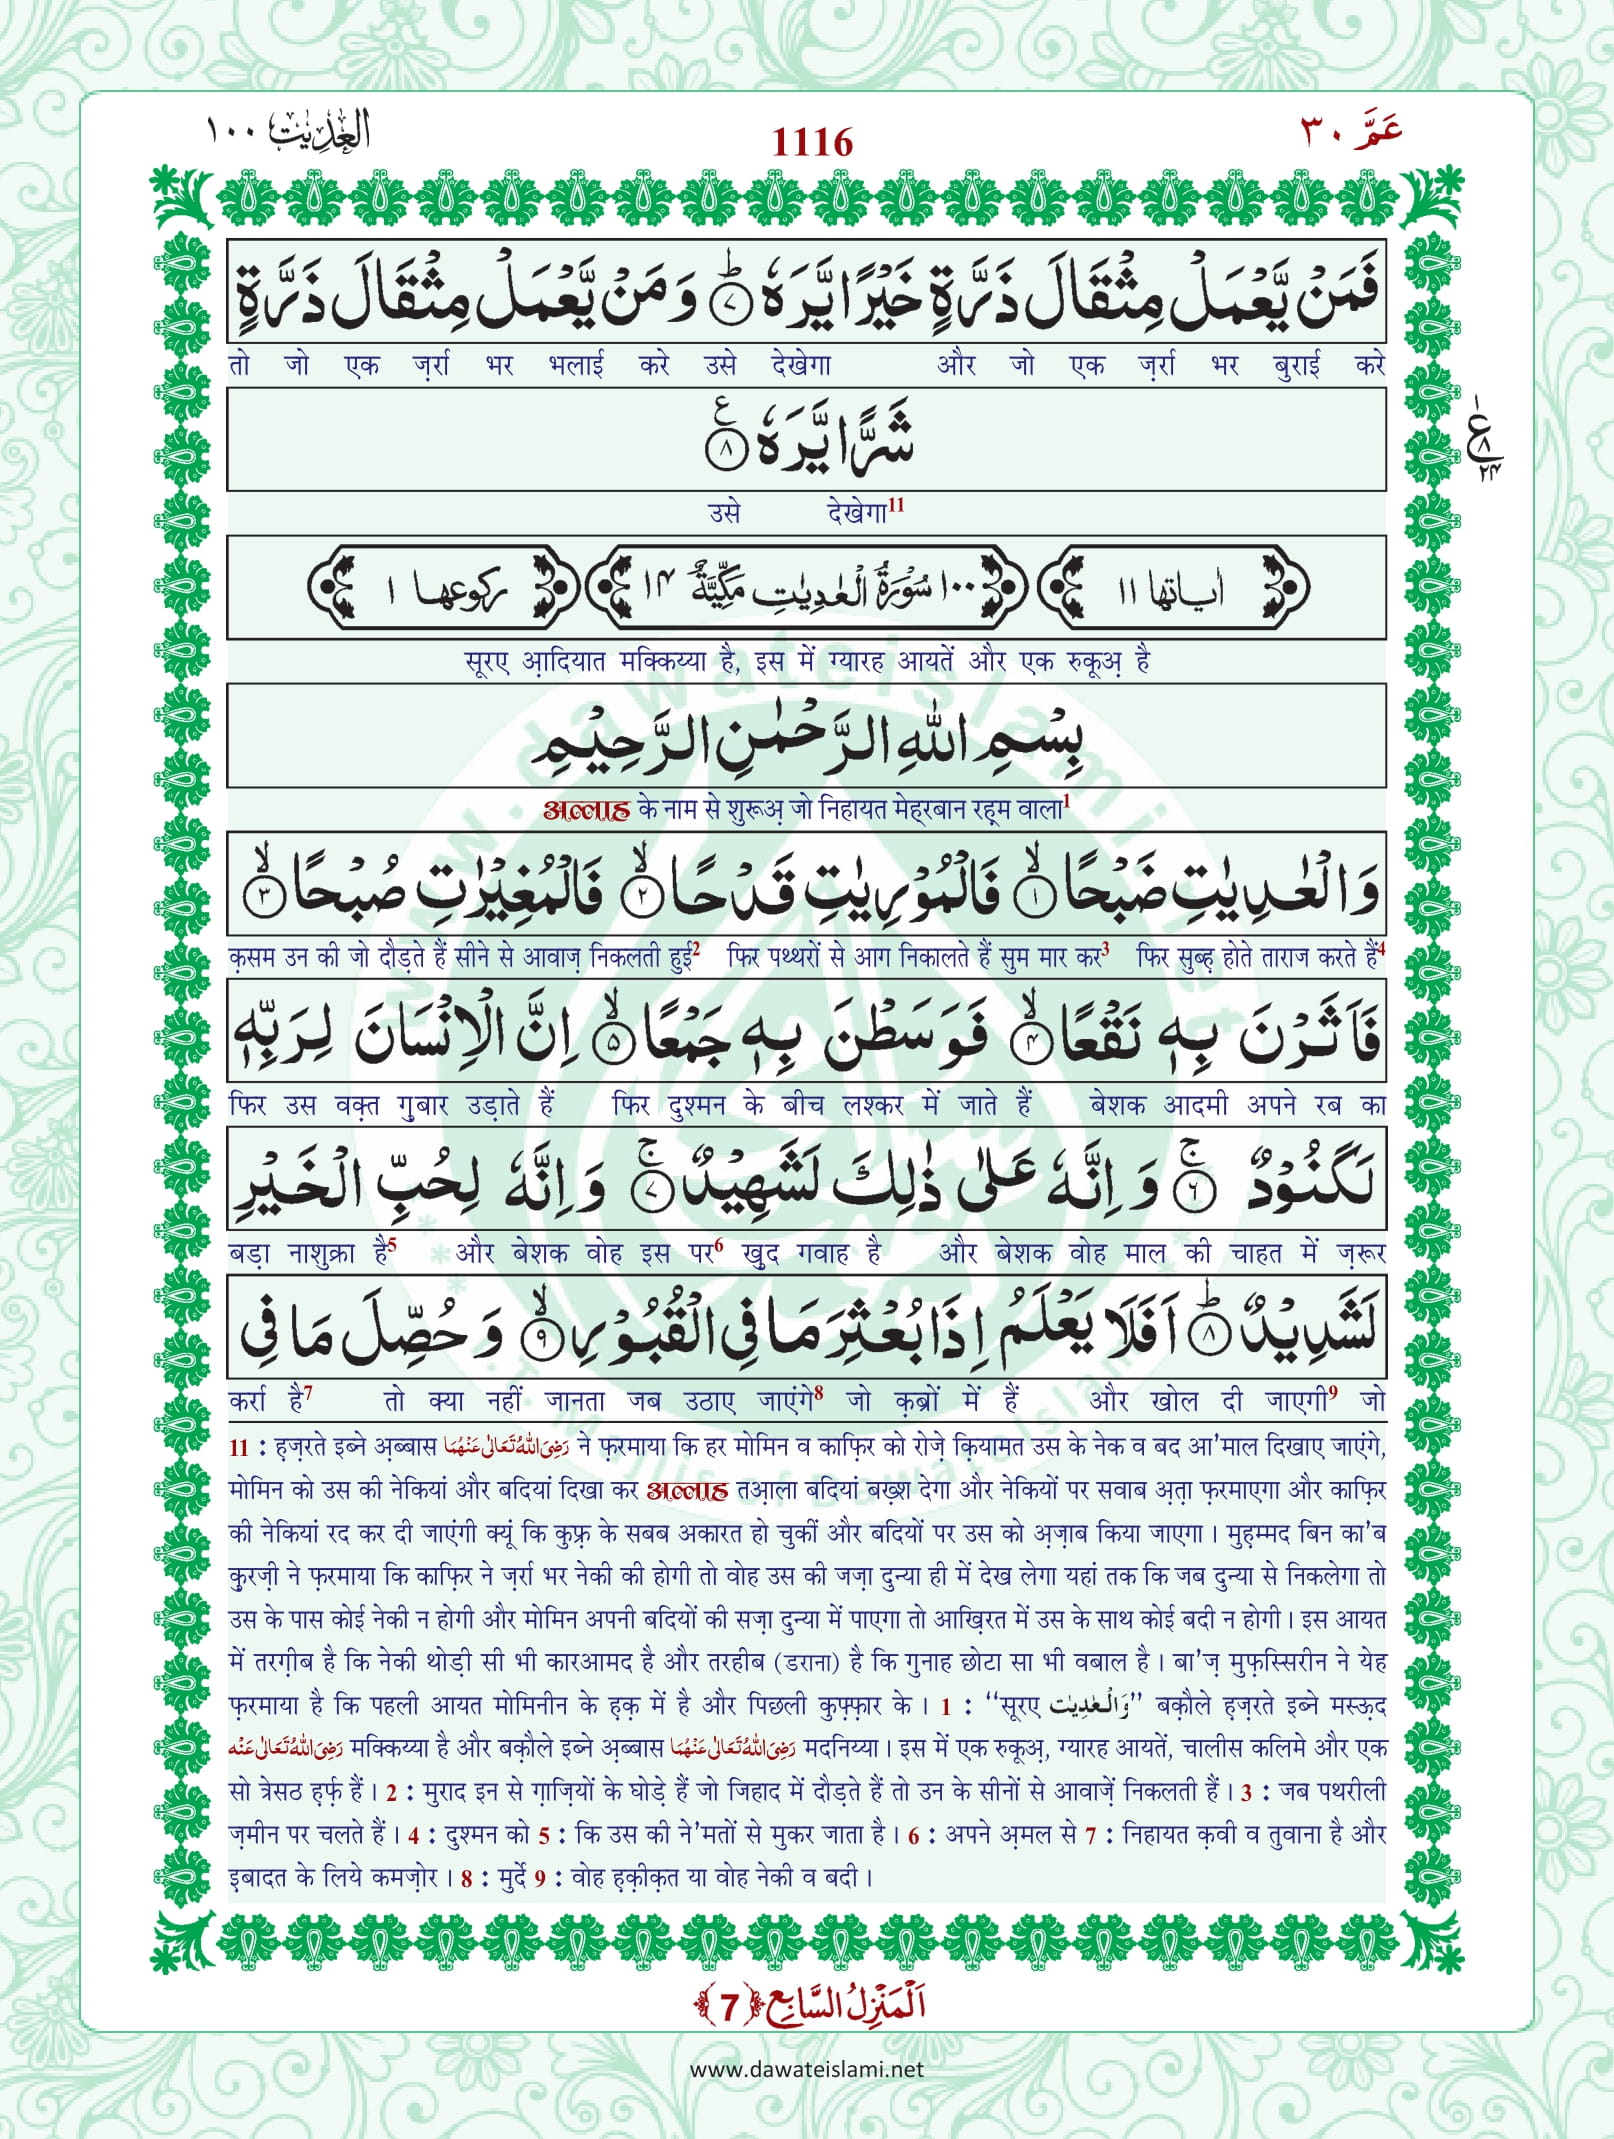 عَمَّ ٣٠
1116
العٰدِيٰت ١٠٠
فَمَنْ يَّعْمَلْ مِثْقَالَ ذَرَّةٍ خَيْرًا يَّرَهٗ ؕ﴿۷﴾ وَمَنْ يَّعْمَلْ مِثْقَالَ ذَرَّةٍ
तो जो एक ज़र्रा भर भलाई करे उसे देखेगा और जो एक ज़र्रा भर बुराई करे
شَرًّا يَّرَهٗ ﴿۸﴾ع
ع ١ ٨ ٢٤
उसे देखेगा11
اٰیاتها ١١
١٠٠ سُوْرَةُ الْعٰدِيٰتِ مَكِّيَّةٌ ١٤
رکوعها ١
सूरए आ़दियात मक्किय्या है, इस में ग्यारह आयतें और एक रुकूअ़ है
بِسْمِ اللّٰهِ الرَّحْمٰنِ الرَّحِيْمِ
अल्लाह के नाम से शुरूअ़ जो निहायत मेह्रबान रह़्म वाला1
وَالْعٰدِيٰتِ ضَبْحًا ۙ﴿۱﴾ فَالْمُوْرِيٰتِ قَدْحًا ۙ﴿۲﴾ فَالْمُغِيْرٰتِ صُبْحًا ۙ﴿۳﴾
क़सम उन की जो दौड़ते हैं सीने से आवाज़ निकलती हुई2 फिर पथ्थरों से आग निकालते हैं सुम मार कर3 फिर सुब्ह़ होते ताराज करते हैं4
فَاَثَرْنَ بِهٖ نَقْعًا ۙ﴿۴﴾ فَوَسَطْنَ بِهٖ جَمْعًا ۙ﴿۵﴾ اِنَّ الْاِنْسَانَ لِرَبِّهٖ
फिर उस वक़्त ग़ुबार उड़ाते हैं फिर दुश्मन के बीच लश्कर में जाते हैं बेशक आदमी अपने रब का
لَكَنُوْدٌ ۚ﴿۶﴾ وَاِنَّهٗ عَلٰى ذٰلِكَ لَشَهِيْدٌ ۚ﴿۷﴾ وَاِنَّهٗ لِحُبِّ الْخَيْرِ
बड़ा नाशुक्रा है5 और बेशक वोह इस पर6 ख़ुद गवाह है और बेशक वोह माल की चाहत में ज़रूर
لَشَدِيْدٌ ؕ﴿۸﴾ اَفَلَا يَعْلَمُ اِذَا بُعْثِرَ مَا فِي الْقُبُوْرِ ۙ﴿۹﴾ وَحُصِّلَ مَا فِي
कर्रा है7 तो क्या नहीं जानता जब उठाए जाएंगे8 जो क़ब्रों में हैं और खोल दी जाएगी9 जो
11 : ह़ज़रते इब्ने अ़ब्बास رَضِیَ اللّٰهُ تَعَالٰی عَنْهُمَا ने फ़रमाया कि हर मोमिन व काफ़िर को रोज़े क़ियामत उस के नेक व बद आ'माल दिखाए जाएंगे,
मोमिन को उस की नेकियां और बदियां दिखा कर अल्लाह तआ़ला बदियां बख़्श देगा और नेकियों पर सवाब अ़त़ा फ़रमाएगा और काफ़िर
की नेकियां रद कर दी जाएंगी क्यूं कि कुफ़्र के सबब अकारत हो चुकीं और बदियों पर उस को अ़ज़ाब किया जाएगा । मुह़म्मद बिन का'ब
क़ुरज़ी ने फ़रमाया कि काफ़िर ने ज़र्रा भर नेकी की होगी तो वोह उस की जज़ा दुन्या ही में देख लेगा यहां तक कि जब दुन्या से निकलेगा तो
उस के पास कोई नेकी न होगी और मोमिन अपनी बदियों की सज़ा दुन्या में पाएगा तो आख़िरत में उस के साथ कोई बदी न होगी । इस आयत
में तरग़ीब है कि नेकी थोड़ी सी भी कारआमद है और तरहीब (डराना) है कि गुनाह छोटा सा भी वबाल है । बा'ज़ मुफ़स्सिरीन ने येह
फ़रमाया है कि पहली आयत मोमिनीन के ह़क़ में है और पिछली कुफ़्फ़ार के । 1 : “सूरए وَالْعٰدِيٰت” बक़ौले ह़ज़रते इब्ने मस्ऊ़द
رَضِیَ اللّٰهُ تَعَالٰی عَنْه मक्किय्या है और बक़ौले इब्ने अ़ब्बास رَضِیَ اللّٰهُ تَعَالٰی عَنْهُمَا मदनिय्या । इस में एक रुकूअ़, ग्यारह आयतें, चालीस कलिमे और एक
सो त्रेसठ ह़र्फ़ हैं । 2 : मुराद इन से ग़ाज़ियों के घोड़े हैं जो जिहाद में दौड़ते हैं तो उन के सीनों से आवाज़ें निकलती हैं । 3 : जब पथरीली
ज़मीन पर चलते हैं । 4 : दुश्मन को 5 : कि उस की ने'मतों से मुकर जाता है । 6 : अपने अ़मल से 7 : निहायत क़वी व तुवाना है और
इ़बादत के लिये कमज़ोर । 8 : मुर्दे 9 : वोह ह़क़ीक़त या वोह नेकी व बदी ।
اَلْمَنْزِلُ السَّابِع ﴿7﴾
www.dawateislami.net